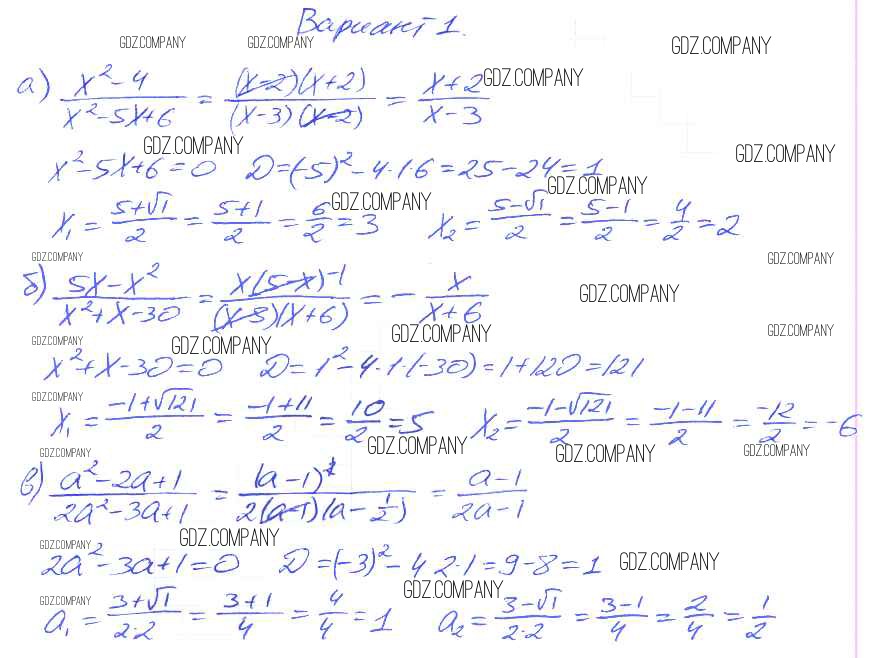 Вариант 1.
GDZ.COMPANY GDZ.COMPANY GDZ.COMPANY
а) (x²-4)/(x²-5x+6) = ((x-2)(x+2))/((x-3)(x-2)) = (x+2)/(x-3) GDZ.COMPANY
GDZ.COMPANY GDZ.COMPANY
x²-5x+6=0 D=(-5)²-4·1·6=25-24=1
GDZ.COMPANY GDZ.COMPANY
x₁ = (5+√1)/2 = (5+1)/2 = 6/2 = 3 x₂ = (5-√1)/2 = (5-1)/2 = 4/2 = 2
GDZ.COMPANY GDZ.COMPANY
б) (5x-x²)/(x²+x-30) = (x(5-x)⁻¹)/((x-5)(x+6)) = - x/(x+6) GDZ.COMPANY
GDZ.COMPANY GDZ.COMPANY GDZ.COMPANY GDZ.COMPANY
x²+x-30=0 D=1²-4·1·(-30)=1+120=121
GDZ.COMPANY
x₁ = (-1+√121)/2 = (-1+11)/2 = 10/2 = 5 x₂ = (-1-√121)/2 = (-1-11)/2 = -12/2 = -6
GDZ.COMPANY GDZ.COMPANY GDZ.COMPANY GDZ.COMPANY
в) (a²-2a+1)/(2a²-3a+1) = (a-1)²/(2(a-1)(a-1/2)) = (a-1)/(2a-1)
GDZ.COMPANY GDZ.COMPANY
2a²-3a+1=0 D=(-3)²-4·2·1=9-8=1 GDZ.COMPANY
GDZ.COMPANY GDZ.COMPANY
a₁ = (3+√1)/(2·2) = (3+1)/4 = 4/4 = 1 a₂ = (3-√1)/(2·2) = (3-1)/4 = 2/4 = 1/2